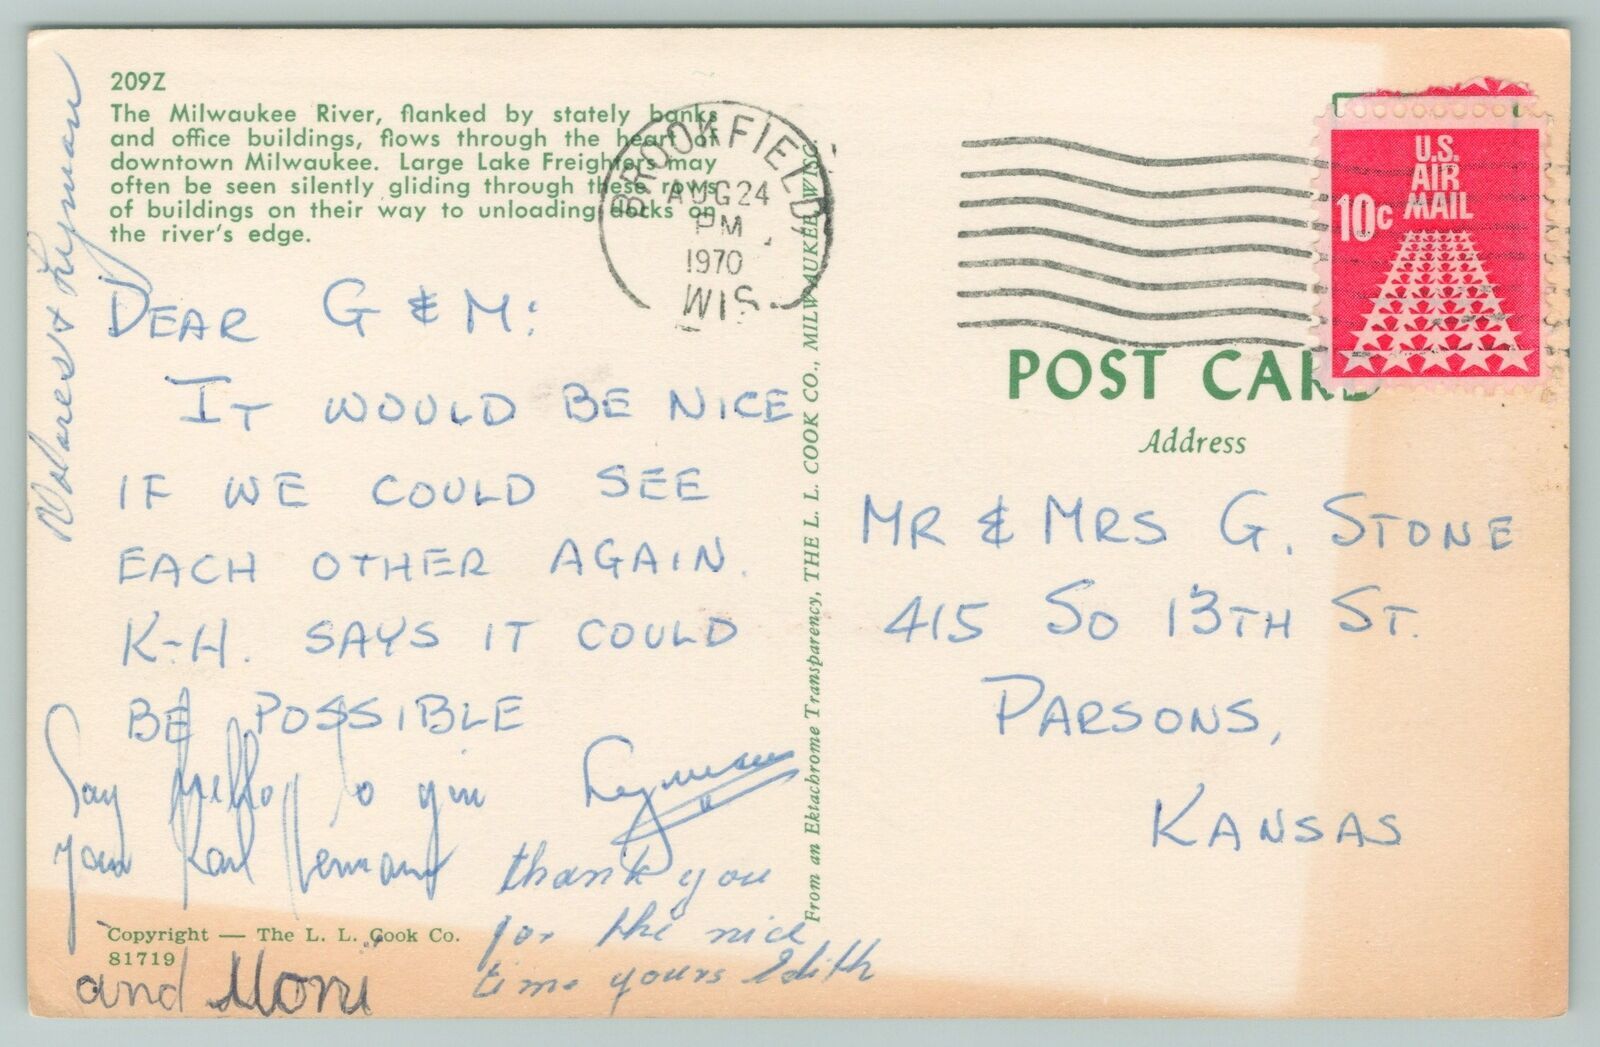 209Z
The Milwaukee River, flanked by stately banks
and office buildings, flows through the heart of
downtown Milwaukee. Large Lake Freighters may
often be seen silently gliding through these rows
of buildings on their way to unloading docks on
the river's edge.
BROOKFIELD,
AUG 24
PM
1970
WIS.
U.S.
AIR
MAIL
10c
DEAR G & M:
IT WOULD BE NICE
IF WE COULD SEE
EACH OTHER AGAIN.
K-H. SAYS IT COULD
BE POSSIBLE
Lyman
Say hello to
your Karl Hermann
and
thank you
for the nice
time yours Edith
Dolores & Lyman
Copyright — The L. L. Cook Co.
81719
From an Ektachrome Transparency, THE L. L. COOK CO., MILWAUKEE, WISC.
POST CARD
Address
MR & MRS G. STONE
415 SO 13TH ST.
PARSONS,
KANSAS